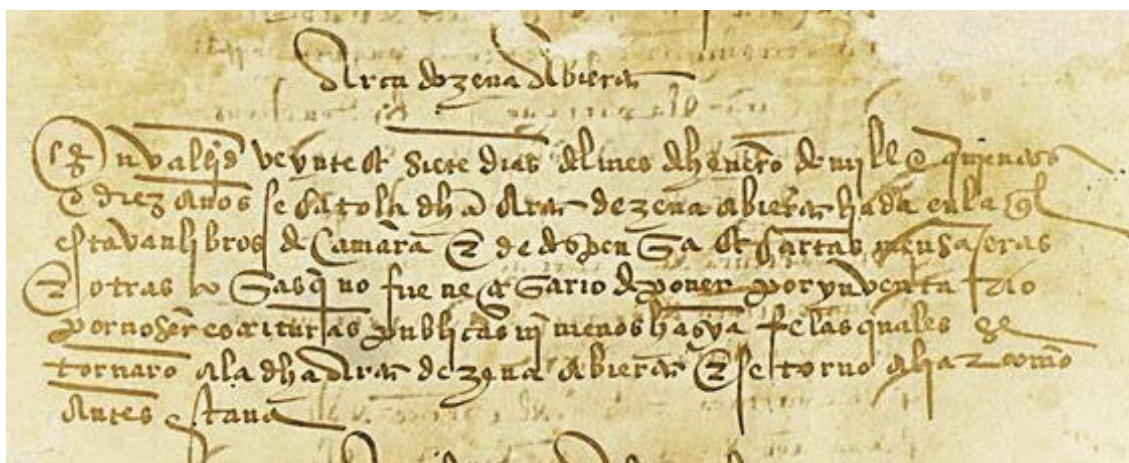 Arca dozena Abierta
En vallid veynte et siete dias del mes de henero de mill e quinientos
e diez años se cato la dha Arca dezena abierta fiada en la ql
estavan libros de Camara e de despensa et cartas mensajeras
e otras cosas q no fue necesario de poner por ynventario
por no ser escrituras publicas ni menos hazya fe las quales se
tornaro a la dha Arca dezena abierta e se torno a liar como
Antes estava